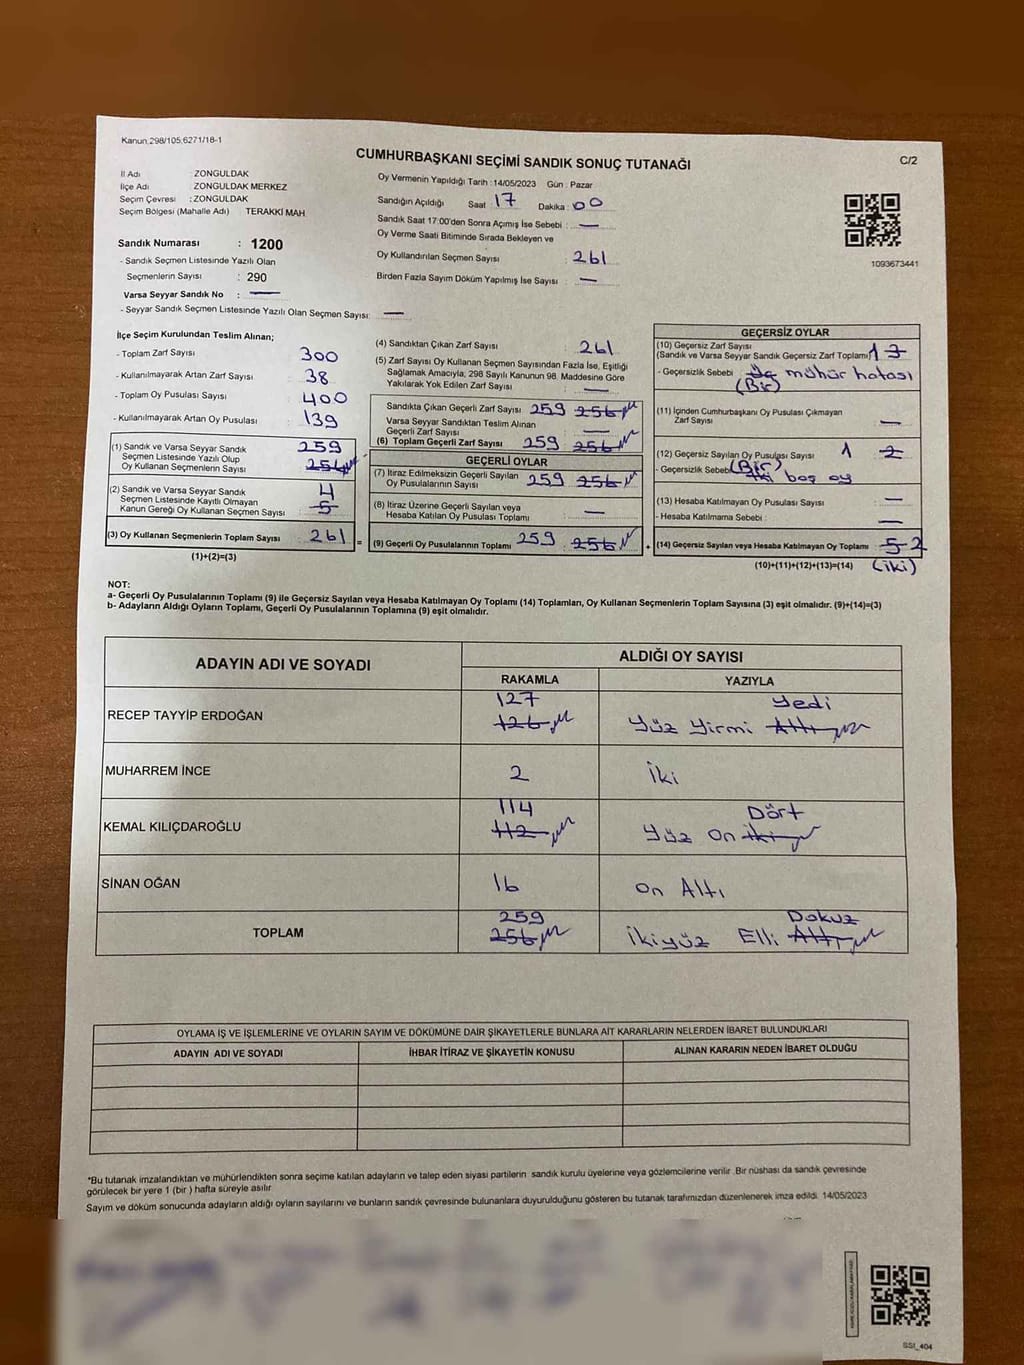 Kanun.298/105,6271/18-1
CUMHURBAŞKANI SEÇİMİ SANDIK SONUÇ TUTANAĞI
C/2
İl Adı : ZONGULDAK
İlçe Adı : ZONGULDAK MERKEZ
Seçim Çevresi : ZONGULDAK
Seçim Bölgesi (Mahalle Adı) TERAKKİ MAH
Sandık Numarası : 1200
- Sandık Seçmen Listesinde Yazılı Olan
Seçmenlerin Sayısı : 290
Varsa Seyyar Sandık No : —
- Seyyar Sandık Seçmen Listesinde Yazılı Olan Seçmen Sayısı: —
Oy Vermenin Yapıldığı Tarih : 14/05/2023 Gün : Pazar
Sandığın Açıldığı Saat 17 Dakika : 00
Sandık Saat 17:00'den Sonra Açımış İse Sebebi : —
Oy Verme Saati Bitiminde Sırada Bekleyen ve
Oy Kullandırılan Seçmen Sayısı : 261
Birden Fazla Sayım Döküm Yapılmış İse Sayısı : —
1093673441
İlçe Seçim Kurulundan Teslim Alınan;
- Toplam Zarf Sayısı : 300
- Kullanılmayarak Artan Zarf Sayısı : 38
- Toplam Oy Pusulası Sayısı : 400
- Kullanılmayarak Artan Oy Pusulası : 139
(1) Sandık ve Varsa Seyyar Sandık 259
Seçmen Listesinde Yazılı Olup 256
Oy Kullanan Seçmenlerin Sayısı
(2) Sandık ve Varsa Seyyar Sandık 4
Seçmen Listesinde Kayıtlı Olmayan 5
Kanun Gereği Oy Kullanan Seçmen Sayısı :
(3) Oy Kullanan Seçmenlerin Toplam Sayısı 261
(1)+(2)=(3)
(4) Sandıktan Çıkan Zarf Sayısı 261
(5) Zarf Sayısı Oy Kullanan Seçmen Sayısından Fazla İse, Eşitliği
Sağlamak Amacıyla, 298 Sayılı Kanunun 98. Maddesine Göre
Yakılarak Yok Edilen Zarf Sayısı : —
Sandıkta Çıkan Geçerli Zarf Sayısı 259 256
Varsa Seyyar Sandıktan Teslim Alınan
Geçerli Zarf Sayısı : —
(6) Toplam Geçerli Zarf Sayısı 259 256
GEÇERLİ OYLAR
(7) İtiraz Edilmeksizin Geçerli Sayılan 259 256
Oy Pusulalarının Sayısı
(8) İtiraz Üzerine Geçerli Sayılan veya
Hesaba Katılan Oy Pusulası Toplamı : —
= (9) Geçerli Oy Pusulalarının Toplamı 259 256
GEÇERSİZ OYLAR
(10) Geçersiz Zarf Sayısı
(Sandık ve Varsa Seyyar Sandık Geçersiz Zarf Toplamı) 1 3
- Geçersizlik Sebebi : Üç mühür hatası
(Bir)
(11) İçinden Cumhurbaşkanı Oy Pusulası Çıkmayan
Zarf Sayısı : —
(12) Geçersiz Sayılan Oy Pusulası Sayısı 1 2
- Geçersizlik Sebebi (Bir)
İki boş oy
(13) Hesaba Katılmayan Oy Pusulası Sayısı —
- Hesaba Katılmama Sebebi : —
+ (14) Geçersiz Sayılan veya Hesaba Katılmayan Oy Toplamı 5 2
(10)+(11)+(12)+(13)=(14) (iki)
NOT:
a- Geçerli Oy Pusulalarının Toplamı (9) ile Geçersiz Sayılan veya Hesaba Katılmayan Oy Toplamı (14) Toplamları, Oy Kullanan Seçmenlerin Toplam Sayısına (3) eşit olmalıdır. (9)+(14)=(3)
b- Adayların Aldığı Oyların Toplamı, Geçerli Oy Pusulalarının Toplamına (9) eşit olmalıdır.
ADAYIN ADI VE SOYADI
ALDIĞI OY SAYISI
RAKAMLA YAZIYLA
127 Yedi
RECEP TAYYİP ERDOĞAN 126 Yüz Yirmi Altı
MUHARREM İNCE 2 İki
114 Dört
KEMAL KILIÇDAROĞLU 112 Yüz On İki
SİNAN OĞAN 16 On Altı
259 Dokuz
TOPLAM 256 İkiyüz Elli Altı
OYLAMA İŞ VE İŞLEMLERİNE VE OYLARIN SAYIM VE DÖKÜMÜNE DAİR ŞİKAYETLERLE BUNLARA AİT KARARLARIN NELERDEN İBARET BULUNDUKLARI
ADAYIN ADI VE SOYADI İHBAR İTİRAZ VE ŞİKAYETİN KONUSU ALINAN KARARIN NEDEN İBARET OLDUĞU
*Bu tutanak imzalandıktan ve mühürlendikten sonra seçime katılan adayların ve talep eden siyasi partilerin sandık kurulu üyelerine veya gözlemcilerine verilir. Bir nüshası da sandık çevresinde
görülecek bir yere 1 (bir ) hafta süreyle asılır.
Sayım ve döküm sonucunda adayların aldığı oyların sayılarını ve bunların sandık çevresinde bulunanlara duyurulduğunu gösteren bu tutanak tarafımızdan düzenlenerek imza edildi. 14/05/2023
SSI_404